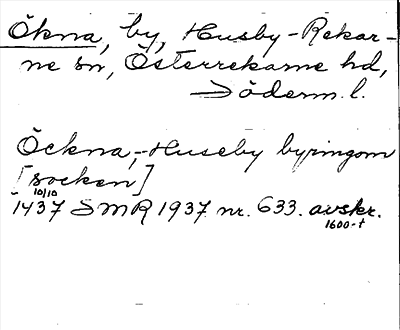 Ökna, by, Husby-Rekar-
ne sn, Österrekarne hd,
Söderm. l.
Öckna,-Huseby byringom
[socken]
10/10
1437 SMR 1937 nr. 633. avskr.
1600-t